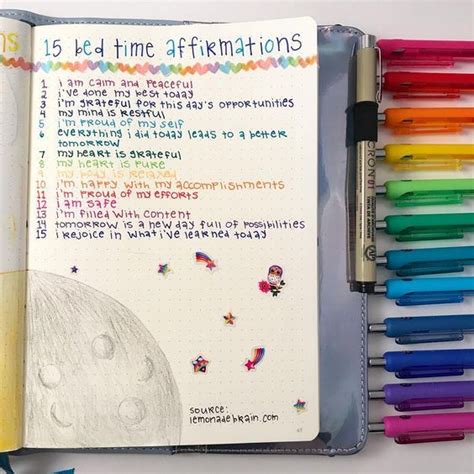 ns
15 bed time affirmations
1 i am calm and peaceful
2 i've done my best today
3 i'm grateful for this day's opportunities
4 my mind is restful
5 i'm proud of my self
6 everything i did today leads to a better
tomorrow
7 my heart is grateful
8 my heart is pure
9 my body is relaxed
10 i'm happy with my accomplishments
11 i'm proud of my efforts
12 i am safe
13 i'm filled with content
14 tomorrow is a new day full of possibilities
15 i rejoice in what i've learned today
source:
lemonadebrain.com